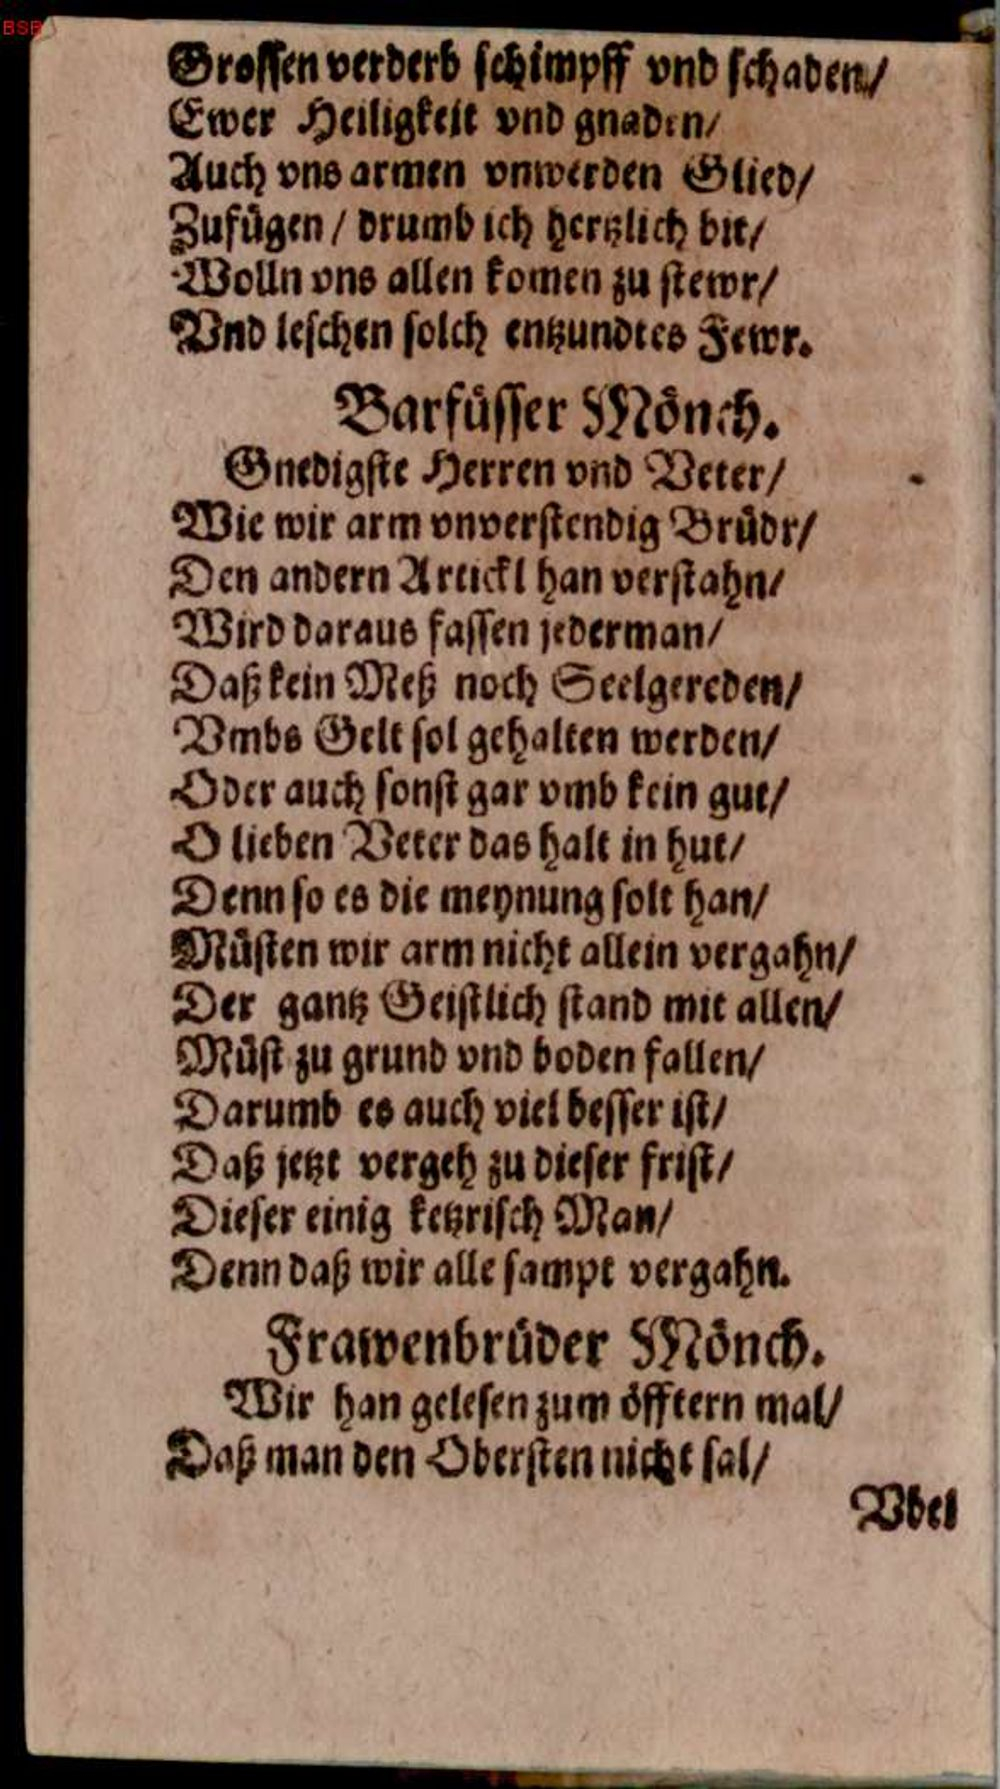 BSB
Grossen verderb schimpff vnd schaden/
Ewer Heiligkeit vnd gnaden/
Auch vns armen vnwerden Glied/
Zufügen / drumb ich hertzlich bit/
Wolln vns allen komen zu stewr/
Vnd leschen solch entzundtes Fewr.
Barfüsser Mönch.
Gnedigste Herren vnd Veter/
Wie wir arm vnverstendig Brüdr/
Den andern Artickl han verstahn/
Wird daraus fassen jederman/
Daß kein Meß noch Seelgereden/
Vmbs Gelt sol gehalten werden/
Oder auch sonst gar vmb kein gut/
O lieben Veter das halt in hut/
Denn so es die meynung solt han/
Müsten wir arm nicht allein vergahn/
Der gantz Geistlich stand mit allen/
Müst zu grund vnd boden fallen/
Darumb es auch viel besser ist/
Daß jetzt vergeh zu dieser frist/
Dieser einig ketzrisch Man/
Denn daß wir alle sampt vergahn.
Frawenbrüder Mönch.
Wir han gelesen zum öfftern mal/
Daß man den Obersten nicht sal/
Vbel